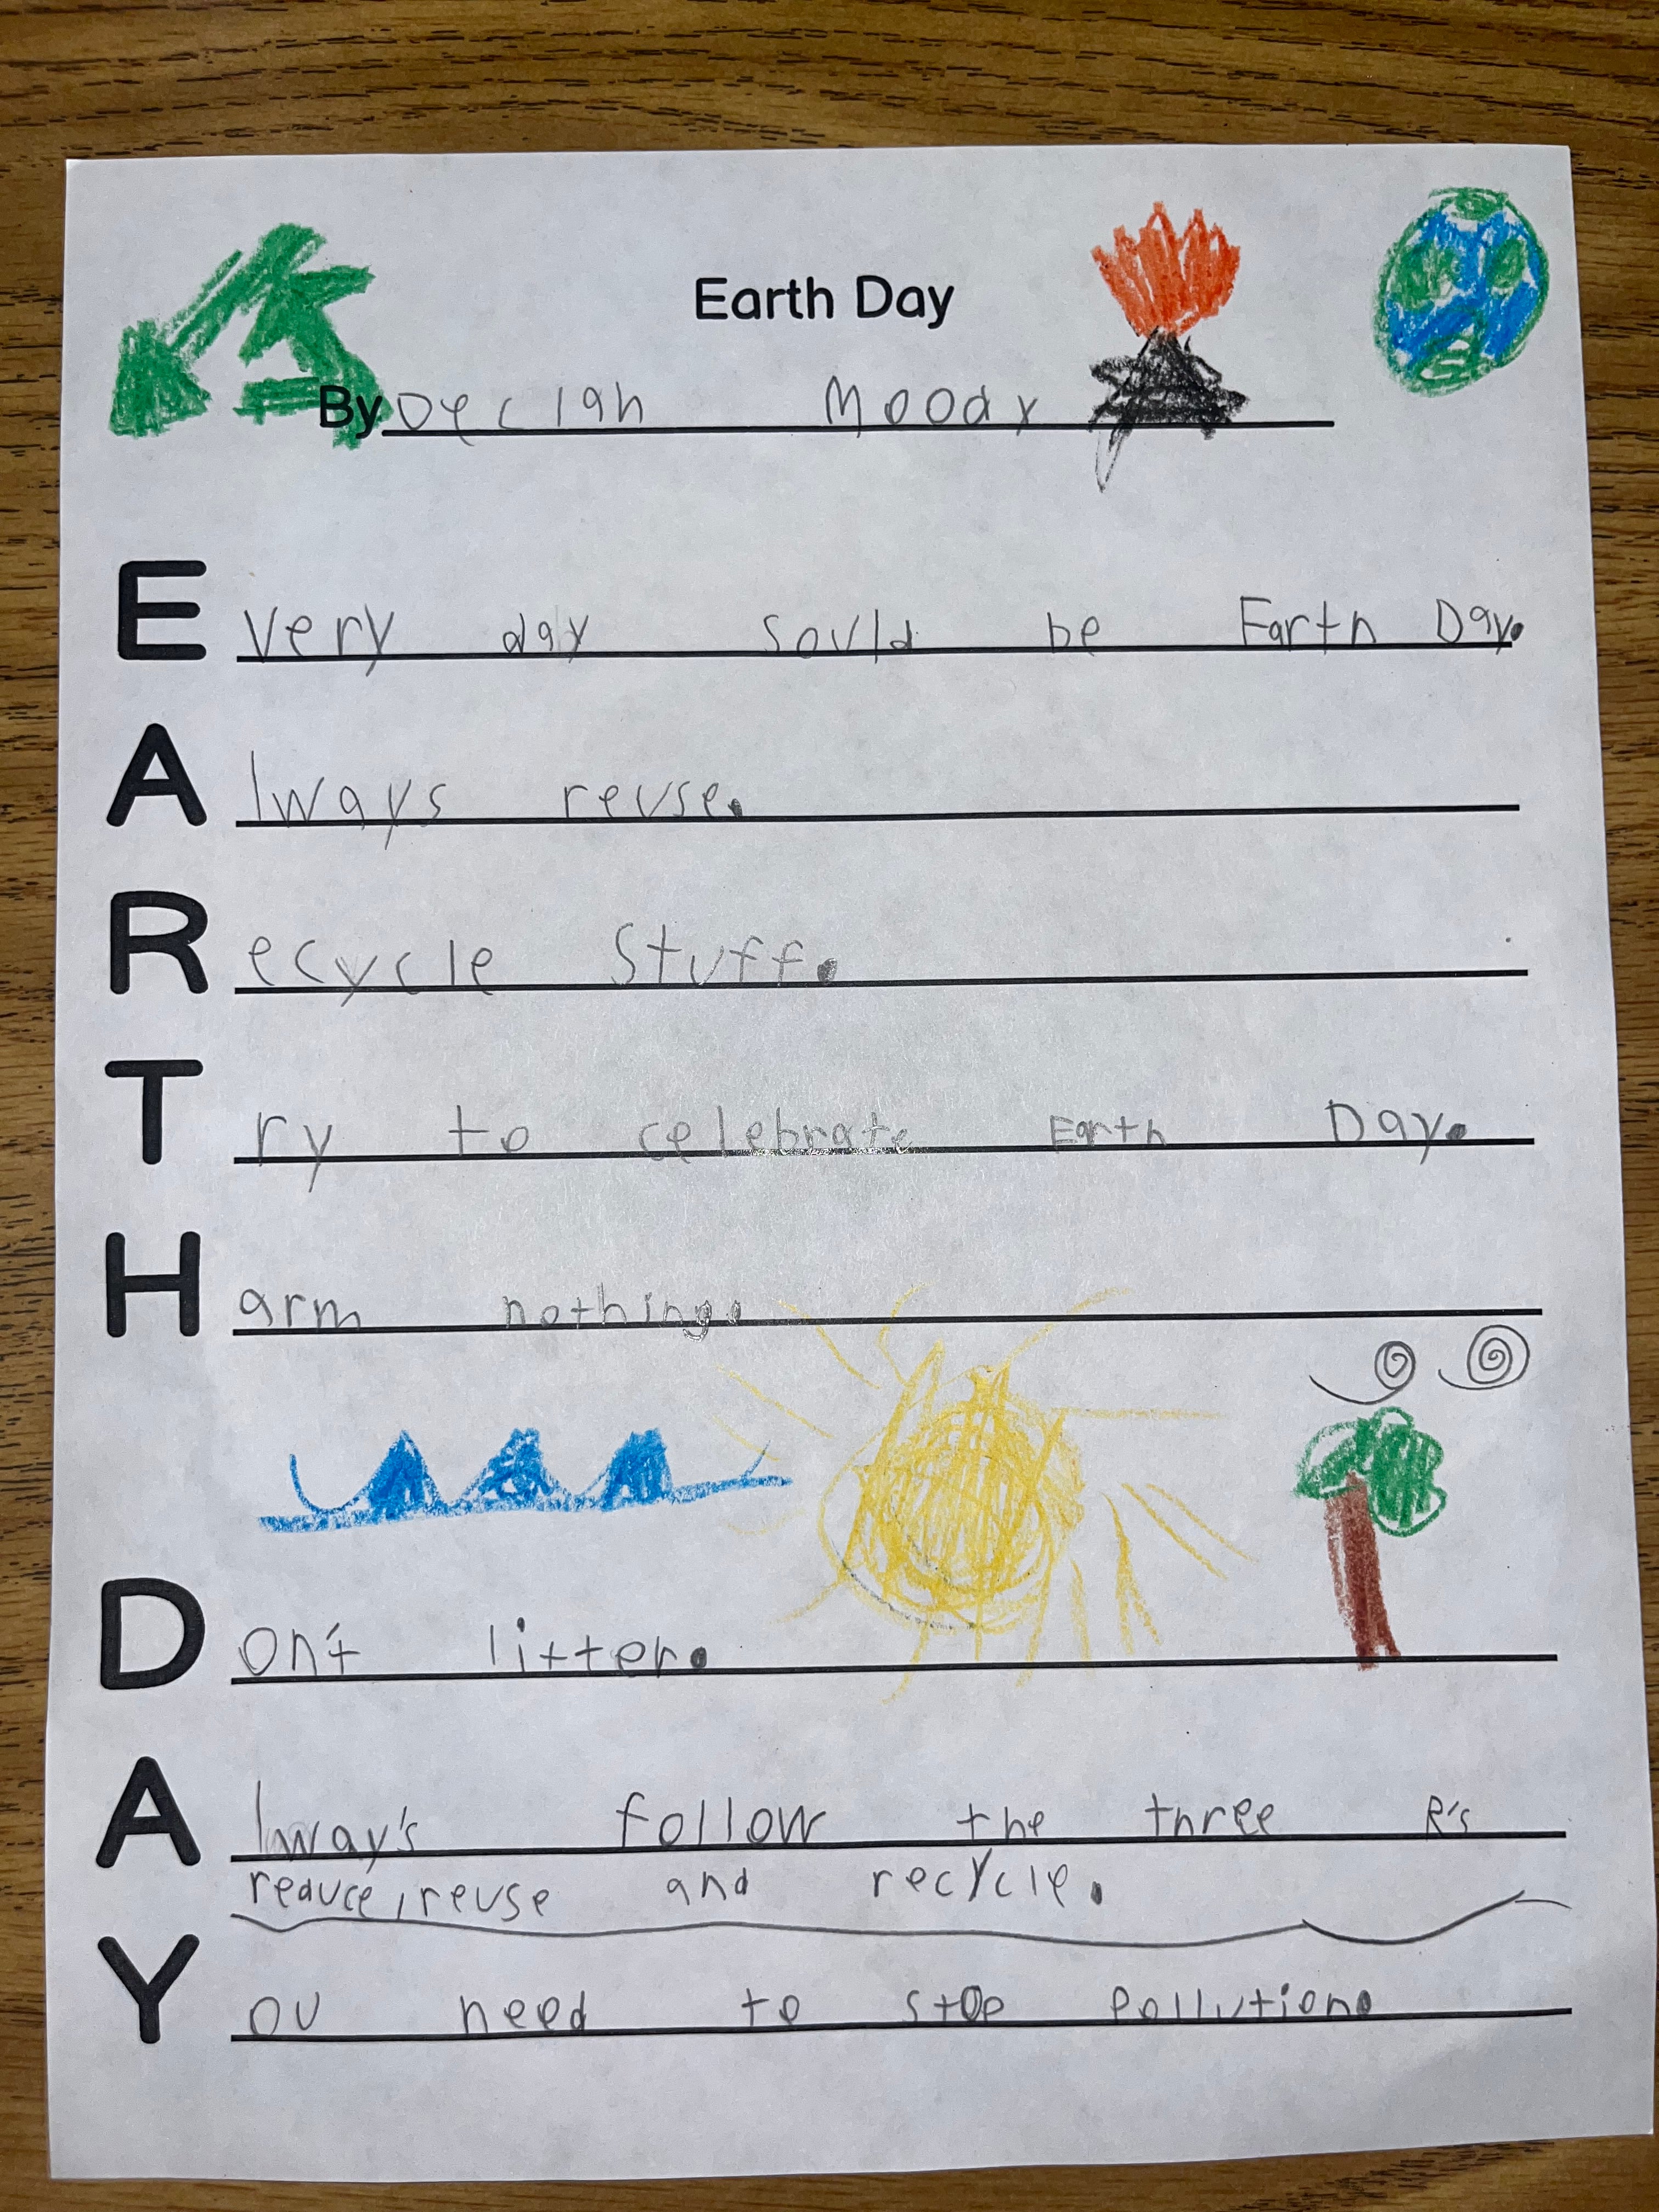 Earth Day
By Declan Moody
Every day sould be Earth Day.
Always reuse.
Recycle stuff.
Try to celebrate Earth Day.
Harm nothing.
Don't litter.
Alway's follow the three R's
reduce, reuse and recycle.
You need to stop pollution.